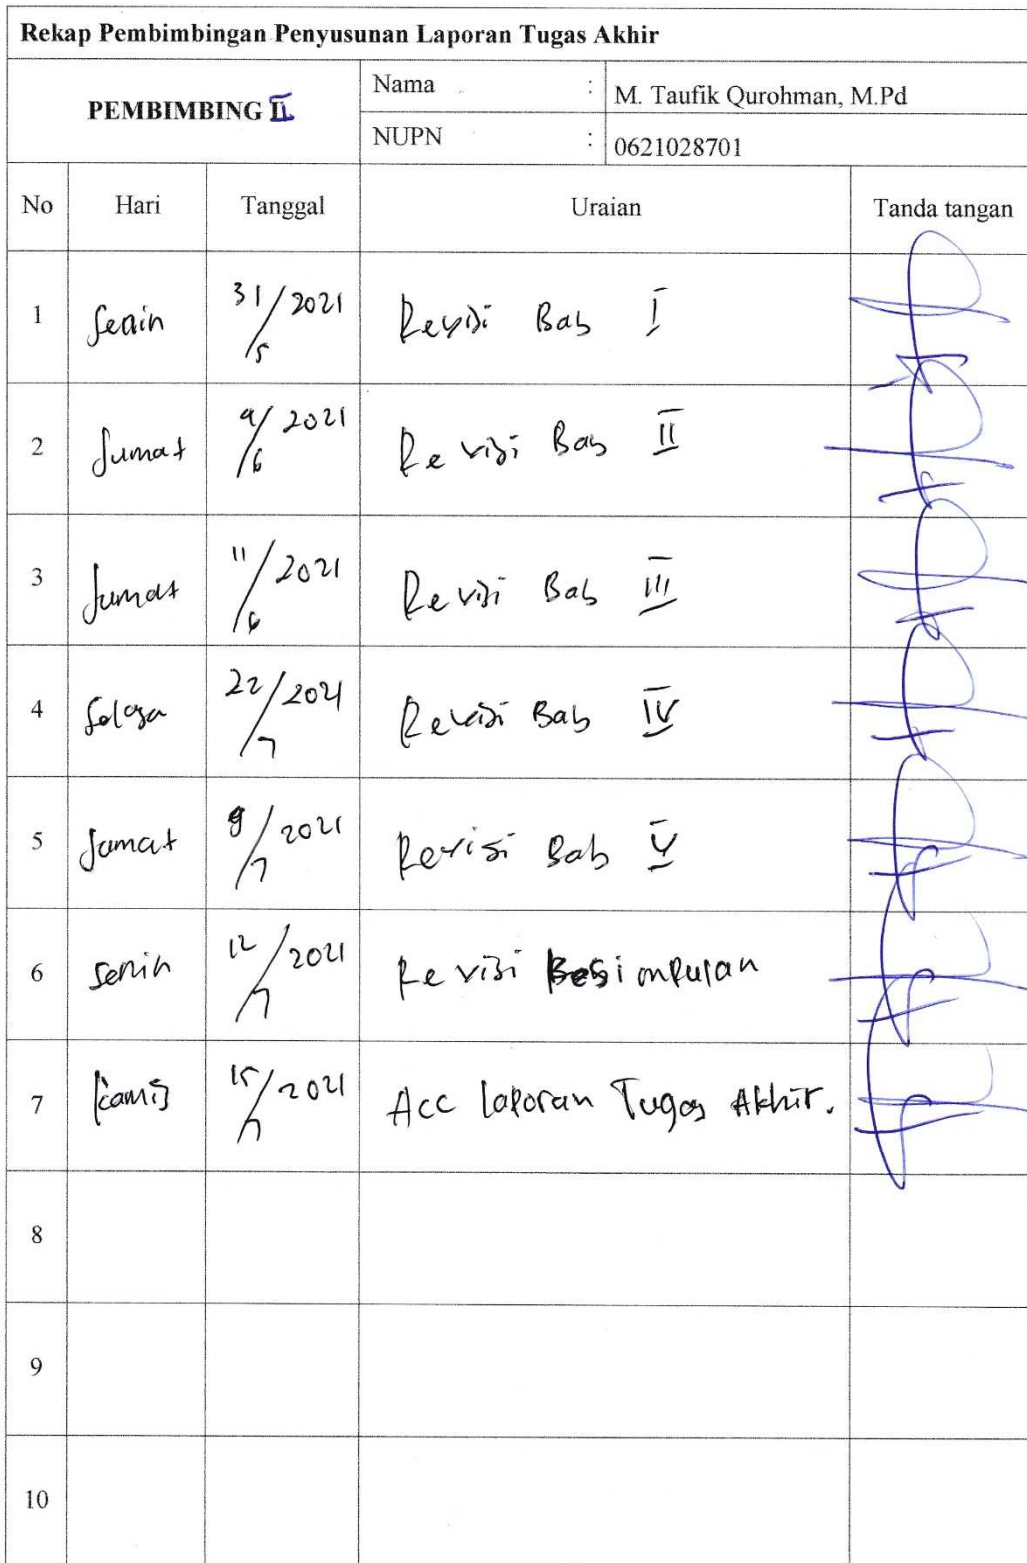 Rekap Pembimbingan Penyusunan Laporan Tugas Akhir
PEMBIMBING II
Nama : M. Taufik Qurohman, M.Pd
NUPN : 0621028701
No Hari Tanggal Uraian Tanda tangan
1 Senin 31/5 2021 Revisi Bab I
2 Jumat /6 2021 Revisi Bab II
3 Jumat 11/6 2021 Revisi Bab III
4 Selasa 22/7 2021 Revisi Bab IV
5 Jumat 9/7 2021 Revisi Bab V
6 Senin 12/7 2021 Revisi Kesimpulan
7 Kamis 15/7 2021 Acc laporan Tugas Akhir.
8
9
10